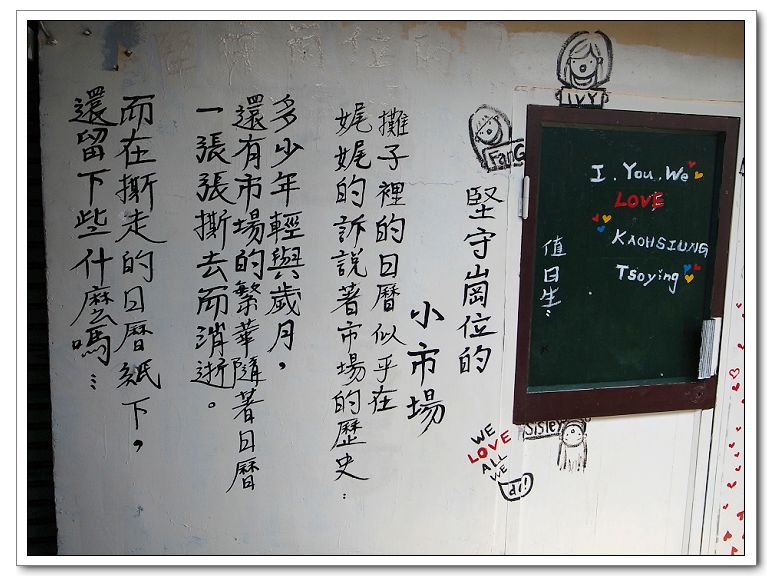 堅守崗位的
小市場
攤子裡的日曆似乎在
娓娓的訴說著市場的歷史…
多少年輕與歲月，
還有市場的繁華隨著日曆
一張張撕去而消逝。
而在撕走的日曆紙下，
還留下些什麼嗎…
IVY
FanG
I. You. We
LOVE
KAOHSIUNG
Tsoying
值日生:
Sisley
WE
LOVE
ALL
WE
di!